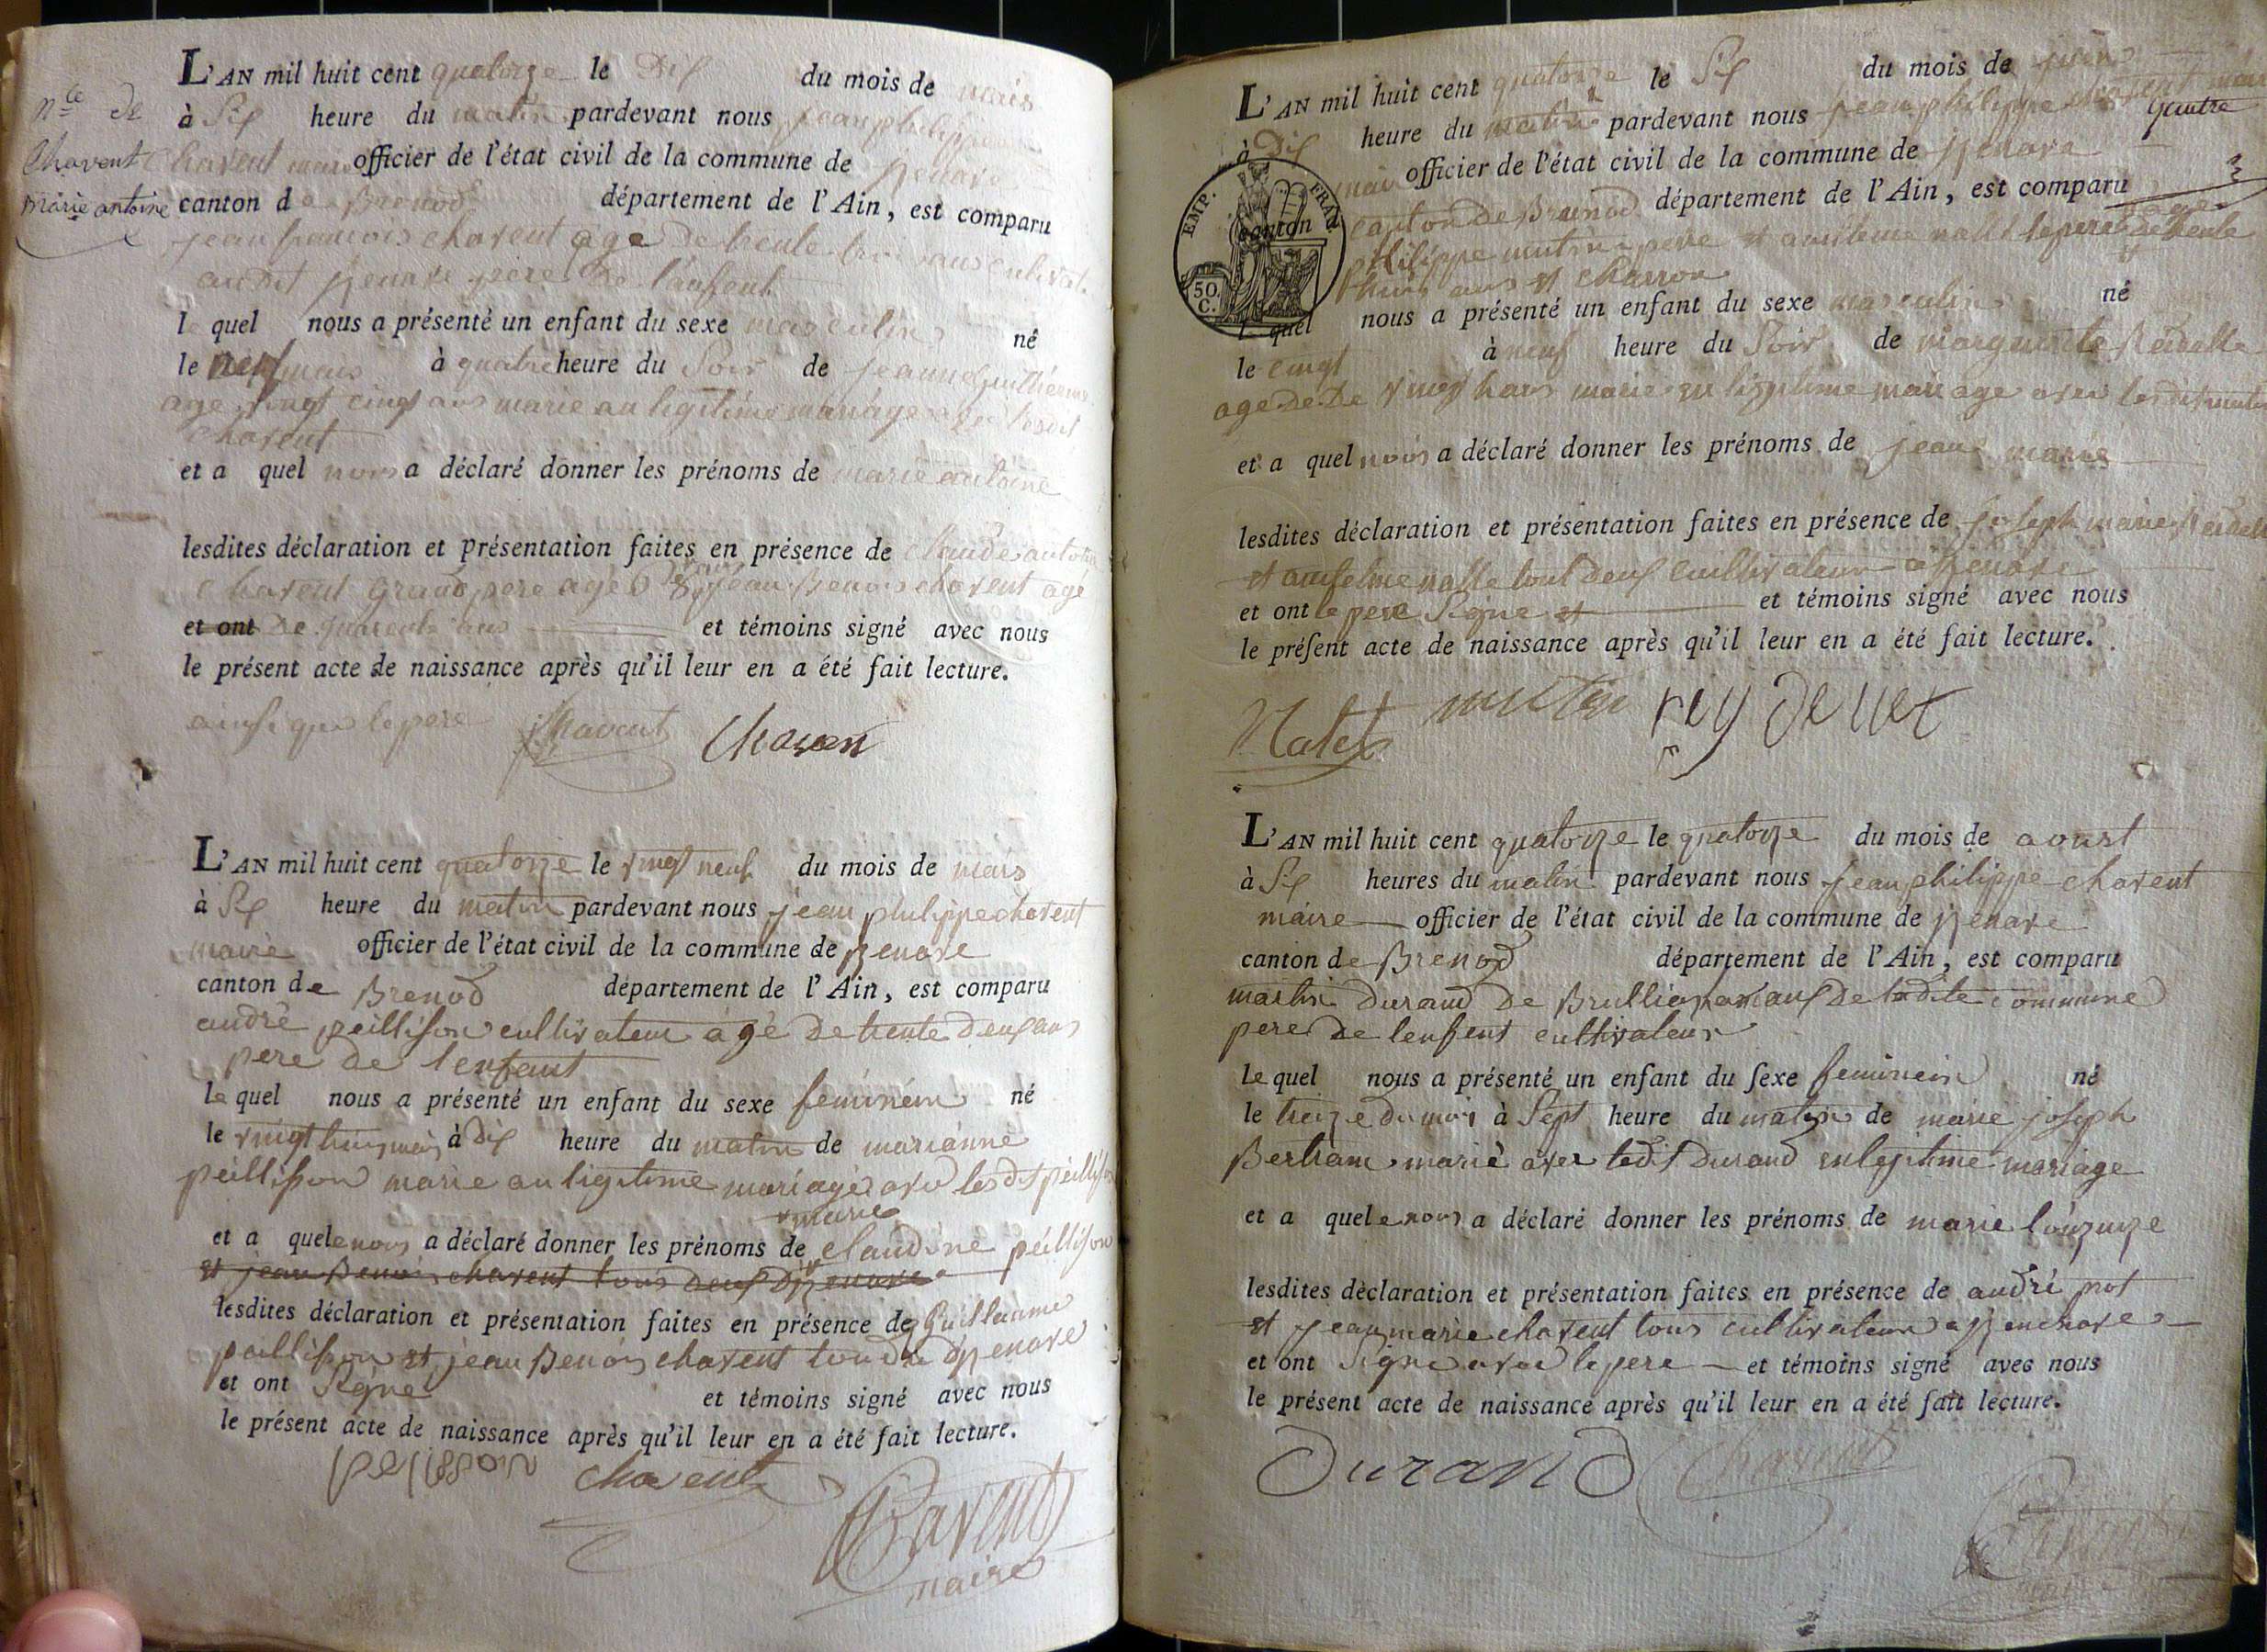 L'AN mil huit cent quatorze le Dix du mois de mars
à Six heure du matin pardevant nous jean philippe
nce de
Chavent
marie antoine
Chavent maire officier de l'état civil de la commune de
canton de Brenod département de l'Ain, est comparu
jean francois chavent age De trente trois ans
audit père De l'enfent
l quel nous a présenté un enfant du sexe masculin né
le neuf mars à quatre heure du Soir de jeanne Guilhéeme
age vingt cinq ans marie au ligitime mariage avec lesdit
chavent
et a quel nous a déclaré donner les prénoms de marie antoine
lesdites déclaration et présentation faites en présence de claude antoine
chavent grand pere age jean Benois chavent age
et ont De quarente ans et témoins signé avec nous
le présent acte de naissance après qu'il leur en a été fait lecture.
ainsi que le pere Chavent Chaven
L'AN mil huit cent quatorze le vingt neuf du mois de mars
à Six heure du matin pardevant nous jean philippe chavent
maire officier de l'état civil de la commune de
canton de Brenod département de l'Ain, est comparu
andré peillison cultivateur agé De trente deux ans
pere de l'enfant
le quel nous a présenté un enfant du sexe feminein né
le vingt huit mars à Dix heure du matin de marianne
peillisson marie au ligitime mariage avec lesdit peillisson
marie
et a quele nous a déclaré donner les prénoms de claudine peillison
et jean Benois chavent tous deux
lesdites déclaration et présentation faites en présence de Guillaume
peillisson et jean Benois chavent
et ont Signé et témoins signé avec nous
le présent acte de naissance après qu'il leur en a été fait lecture.
pelisson chavent Chavent
maire
L'AN mil huit cent quatorze le Six du mois de juin
à Dix heure du matin pardevant nous jean philippe chavent
quatre
maire officier de l'état civil de la commune de
EMP. FRAN.
50.
C.
canton
canton De Brenod département de l'Ain, est comparu
philippe mutin pere et anselme le pere De trente
huit ans et charron
l quel nous a présenté un enfant du sexe masculin né
le cinq à neuf heure du Soir de marguerite
age De De vingt huit marie en ligitime mariage avec lesdit mutin
et a quel nous a déclaré donner les prénoms de jean marie
lesdites déclaration et présentation faites en présence de joseph marie
et anselme tout deux cultivateur
et ont le pere Signe et et témoins signé avec nous
le présent acte de naissance après qu'il leur en a été fait lecture.
Nalet mutin reydellet
L'AN mil huit cent quatorze le quatorze du mois de aoust
à Six heures du matin pardevant nous jean philippe chavent
maire officier de l'état civil de la commune de
canton de Brenod département de l'Ain, est comparu
martin Durand De De ladite commune
pere De lenfent cultivateur
Le quel nous a présenté un enfant du sexe feminein né
le treize du mois à Sept heure du matin de marie joseph
Bertram marié avec ledit Durand en legitime mariage
et a quele nous a déclaré donner les prénoms de marie
lesdites dèclaration et présentation faites en présence de andré
et jean marie chavent tous cultivateur
et ont Signe avec le pere et témoins signé avec nous
le présent acte de naissance après qu'il leur en a été fait lecture.
Durand Chavent